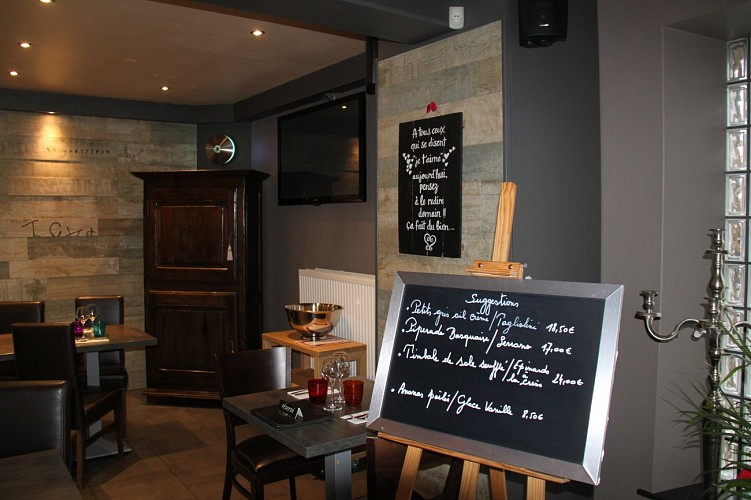 A tous ceux
qui se disent
"je t'aime"
aujourd'hui,
pensez
à le redire
demain !!
Ça fait du bien...
Suggestions
• Petits gris ail crème / Tagliolini 18,50€
• Piperade Basquaise / Serrano 17,00€
• Timbale de sole soufflé / Epinards
24,00€
• Ananas poêlé / Glace Vanille 8,50€